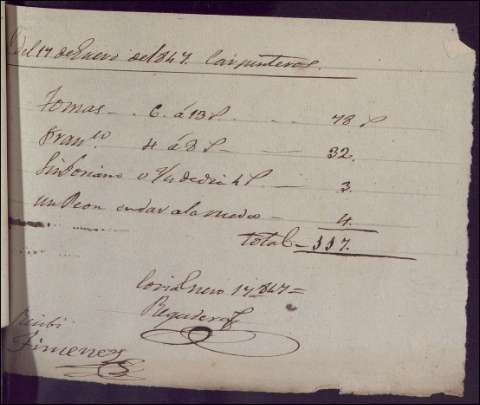 Del 17 de Enero de 1847. Carpinteros.
Tomas 6. á 13 78
Franco 4 á 8 32.
Sinforiano 3.
un Peon en dar a la rueda 4.
total 117.
Coria Enero 17 847
Recibi
Jimenez